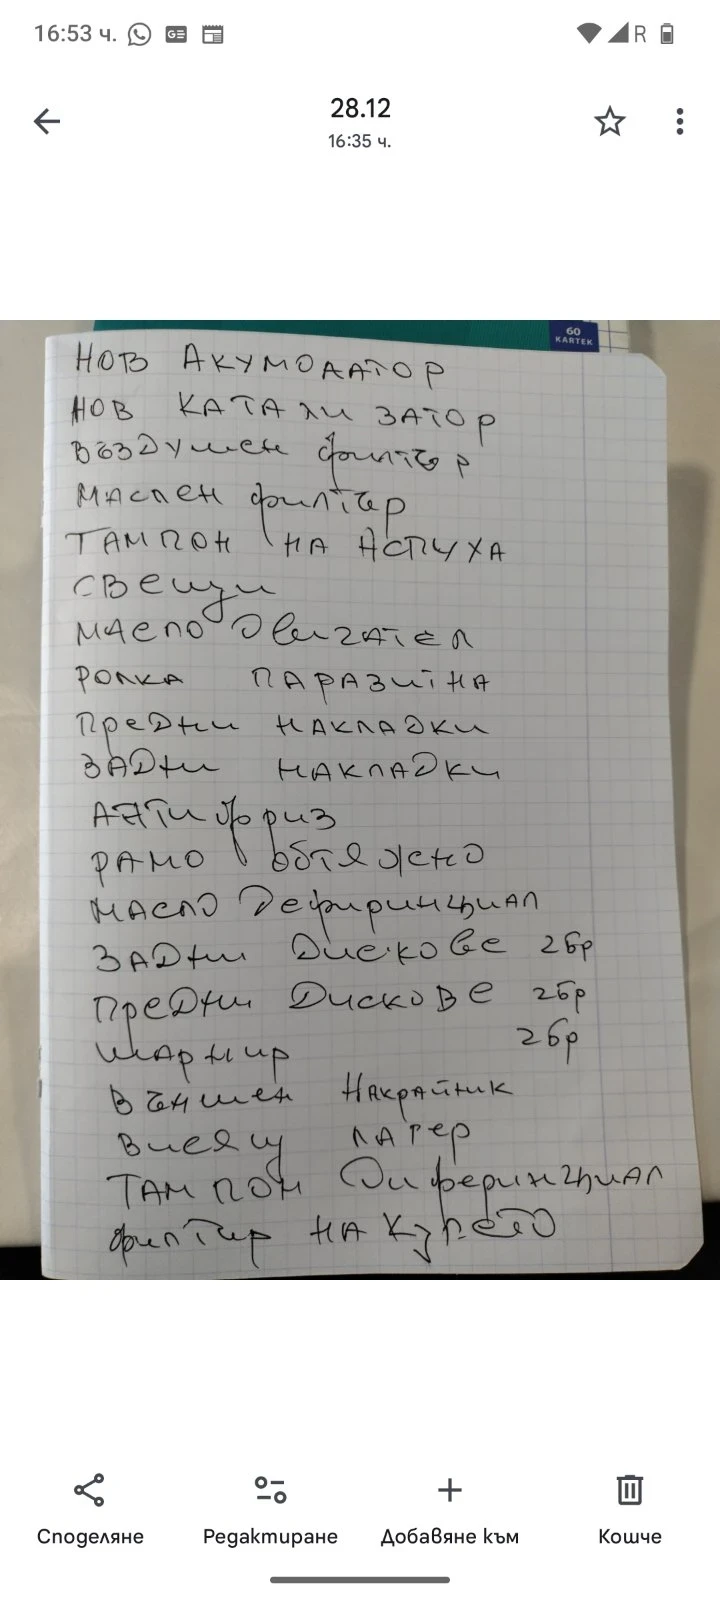 16:53 ч.
R
28.12
16:35 ч.
60
KARTEK
НОВ АКУМОЛАТОР
НОВ КАТАЛИЗАТОР
ВЪЗДУШЕН филтър
МАСЛЕН филтър
ТАМПОН НА АСПУХА
СВЕЩИ
МАСЛО ДВИГАТЕЛ
РОЛКА ПАРАЗИТНА
ПРЕДНИ НАКЛАДКИ
ЗАДНИ НАКЛАДКИ
АНТИФРИЗ
РАМО ОБТЯЖНО
МАСЛО ДЕФИРИНЦИАЛ
ЗАДНИ ДИСКОВЕ 2бр
ПРЕДНИ ДИСКОВЕ 2бр
ШАРНИР 2бр
ВЪНШЕН НАКРАЙНИК
ВИСЯЩ ЛАГЕР
ТАМПОН ДИФЕРИНЦИАЛ
филтир НА КУПЕТО
Споделяне Редактиране Добавяне към Кошче